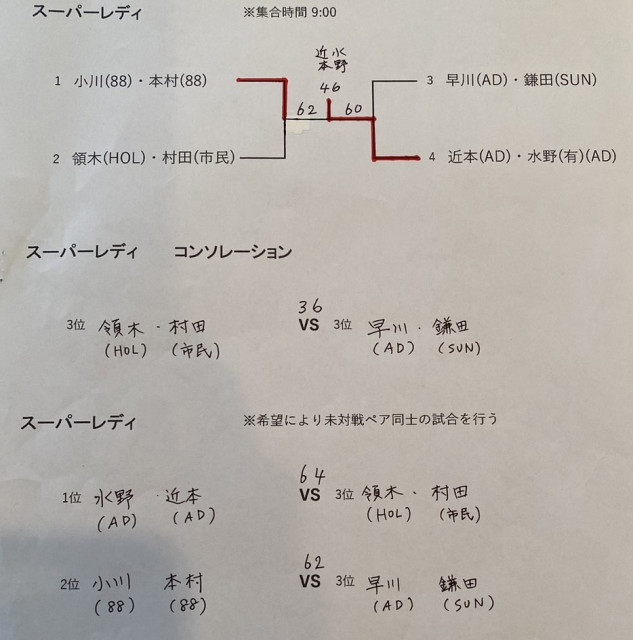 スーパーレディ ※集合時間 9:00
近本 水野
1 小川(88)・本村(88) 46 3 早川(AD)・鎌田(SUN)
62 60
2 領木(HOL)・村田(市民) 4 近本(AD)・水野(有)(AD)
スーパーレディ コンソレーション
36
3位 領木・村田 VS 3位 早川・鎌田
(HOL) (市民) (AD) (SUN)
スーパーレディ ※希望により未対戦ペア同士の試合を行う
64
1位 水野・近本 VS 3位 領木・村田
(AD) (AD) (HOL) (市民)
62
2位 小川 本村 VS 3位 早川 鎌田
(88) (88) (AD) (SUN)